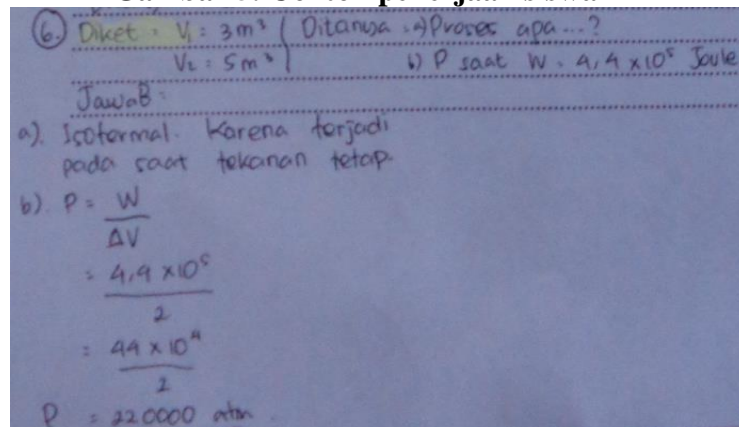 6.) Diket : V₁ = 3 m³ Ditanya : a) Proses apa ...?
V₂ = 5 m³ b) P saat W = 4,4 x 10⁵ Joule
Jawab :
a). Isotermal. Karena terjadi
pada saat tekanan tetap.
b). P = W
ΔV
= 4,4 x 10⁵
2
= 44 x 10⁴
2
P = 220000 atm.